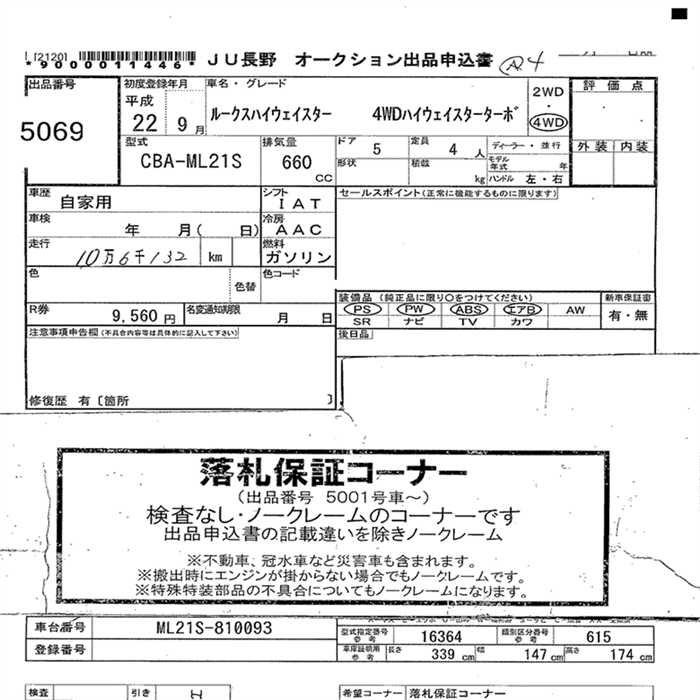 [2120]
*9000011446* JU長野 オークション出品申込書
出品番号 初度登録年月 車名・グレード 評価点
平成 2WD
5069 22 9月 ルークスハイウェイスター 4WDハイウェイスターターボ ・
4WD
型式 排気量 ドア 5 定員 4人 ディーラー・並行 外装 内装
CBA-ML21S 660cc 形状 積載 kg モデル年式 年
ハンドル 左・右
車歴 自家用 シフト IAT セールスポイント(正常に機能するものに限ります)
車検 年 月( 日) 冷房 AAC
走行 10万6千132 km 燃料 ガソリン
色 色替 色コード
装備品 (純正品に限り○をつけてください) 新車保証書
R券 9,560円 名変通知期限 月 日 PS PW ABS エアB AW 有・無
SR ナビ TV カワ
注意事項申告欄(不具合内容等は具体的に記入して下さい) 後日品
修復歴 有〔箇所 〕
落札保証コーナー
(出品番号 5001号車～)
検査なし・ノークレームのコーナーです
出品申込書の記載違いを除きノークレーム
※不動車、冠水車など災害車も含まれます。
※搬出時にエンジンが掛からない場合でもノークレームです。
※特殊特装部品の不具合についてもノークレームになります。
車台番号 ML21S-810093 型式指定番号 参考 16364 類別区分番号 参考 615
登録番号 車庫証明用 参考 長さ 339cm 幅 147cm 高さ 174cm
検査 引き 希望コーナー 落札保証コーナー